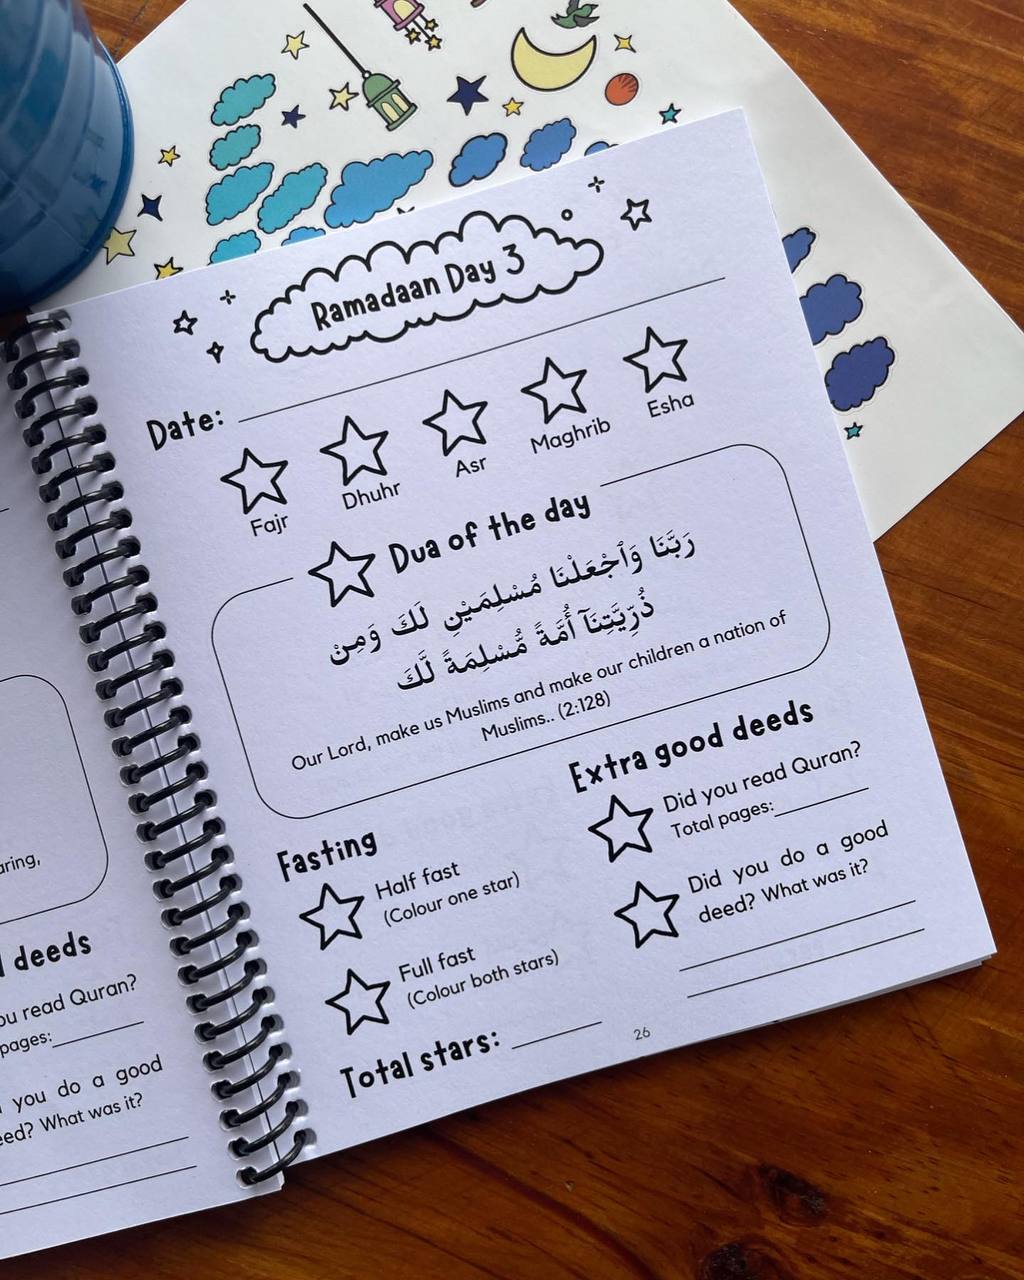 Ramadaan Day 3
Date:
Fajr
Dhuhr
Asr
Maghrib
Esha
Dua of the day
رَبَّنَا وَٱجْعَلْنَا مُسْلِمَيْنِ لَكَ وَمِنْ
ذُرِّيَّتِنَآ أُمَّةً مُّسْلِمَةً لَّكَ
Our Lord, make us Muslims and make our children a nation of
Muslims.. (2:128)
Fasting
Half fast
(Colour one star)
Full fast
(Colour both stars)
Total stars:
Extra good deeds
Did you read Quran?
Total pages:
Did you do a good
deed? What was it?
26
deeds
you read Quran?
pages:
you do a good
deed? What was it?